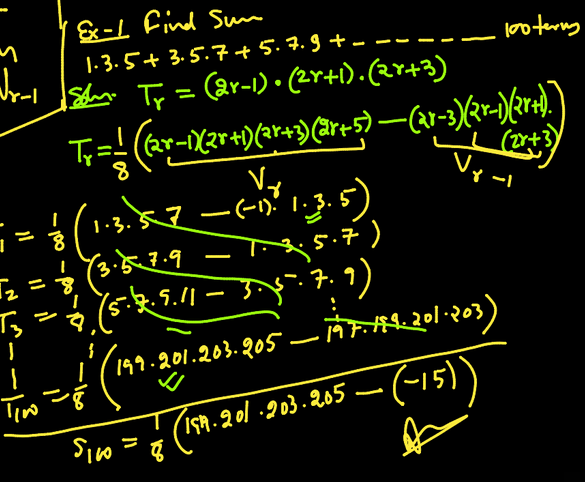 V_{r-1}
Ex-1 Find Sum
1.3.5 + 3.5.7 + 5.7.9 + - - - - - - - - 100 terms
Soln. T_r = (2r-1) . (2r+1) . (2r+3)
T_r = 1/8 ( (2r-1)(2r+1)(2r+3)(2r+5) — (2r-3)(2r-1)(2r+1).(2r+3) )
V_r V_{r-1}
1 = 1/8 ( 1.3.5.7 — (-1). 1.3.5 )
T_2 = 1/8 ( 3.5.7.9 — 1.3.5.7 )
T_3 = 1/8 ( 5.7.9.11 — 3.5.7.9 )
T_100 = 1/8 ( 199.201.203.205 — 197.199.201.203 )
S_100 = 1/8 ( 199.201.203.205 — (-15) )